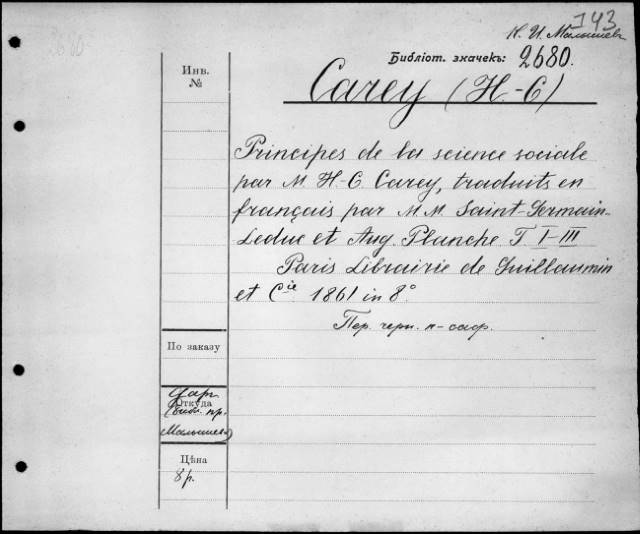 143
К. И. Малышев
Библіот. значекъ: 2680.
Инв.
№
Carey (H.-C)
Principes de la science sociale
par M. H.-C. Carey, traduits en
français par M.M. Saint-Germain-
Leduc et Aug. Planche T I-III
Paris Librairie de Guillaumin
et Cie 1861 in 8°
Пер. черн. к-саф.
По заказу
Дар
Откуда
(библ. пр.
Малышева)
Цѣна
8 р.